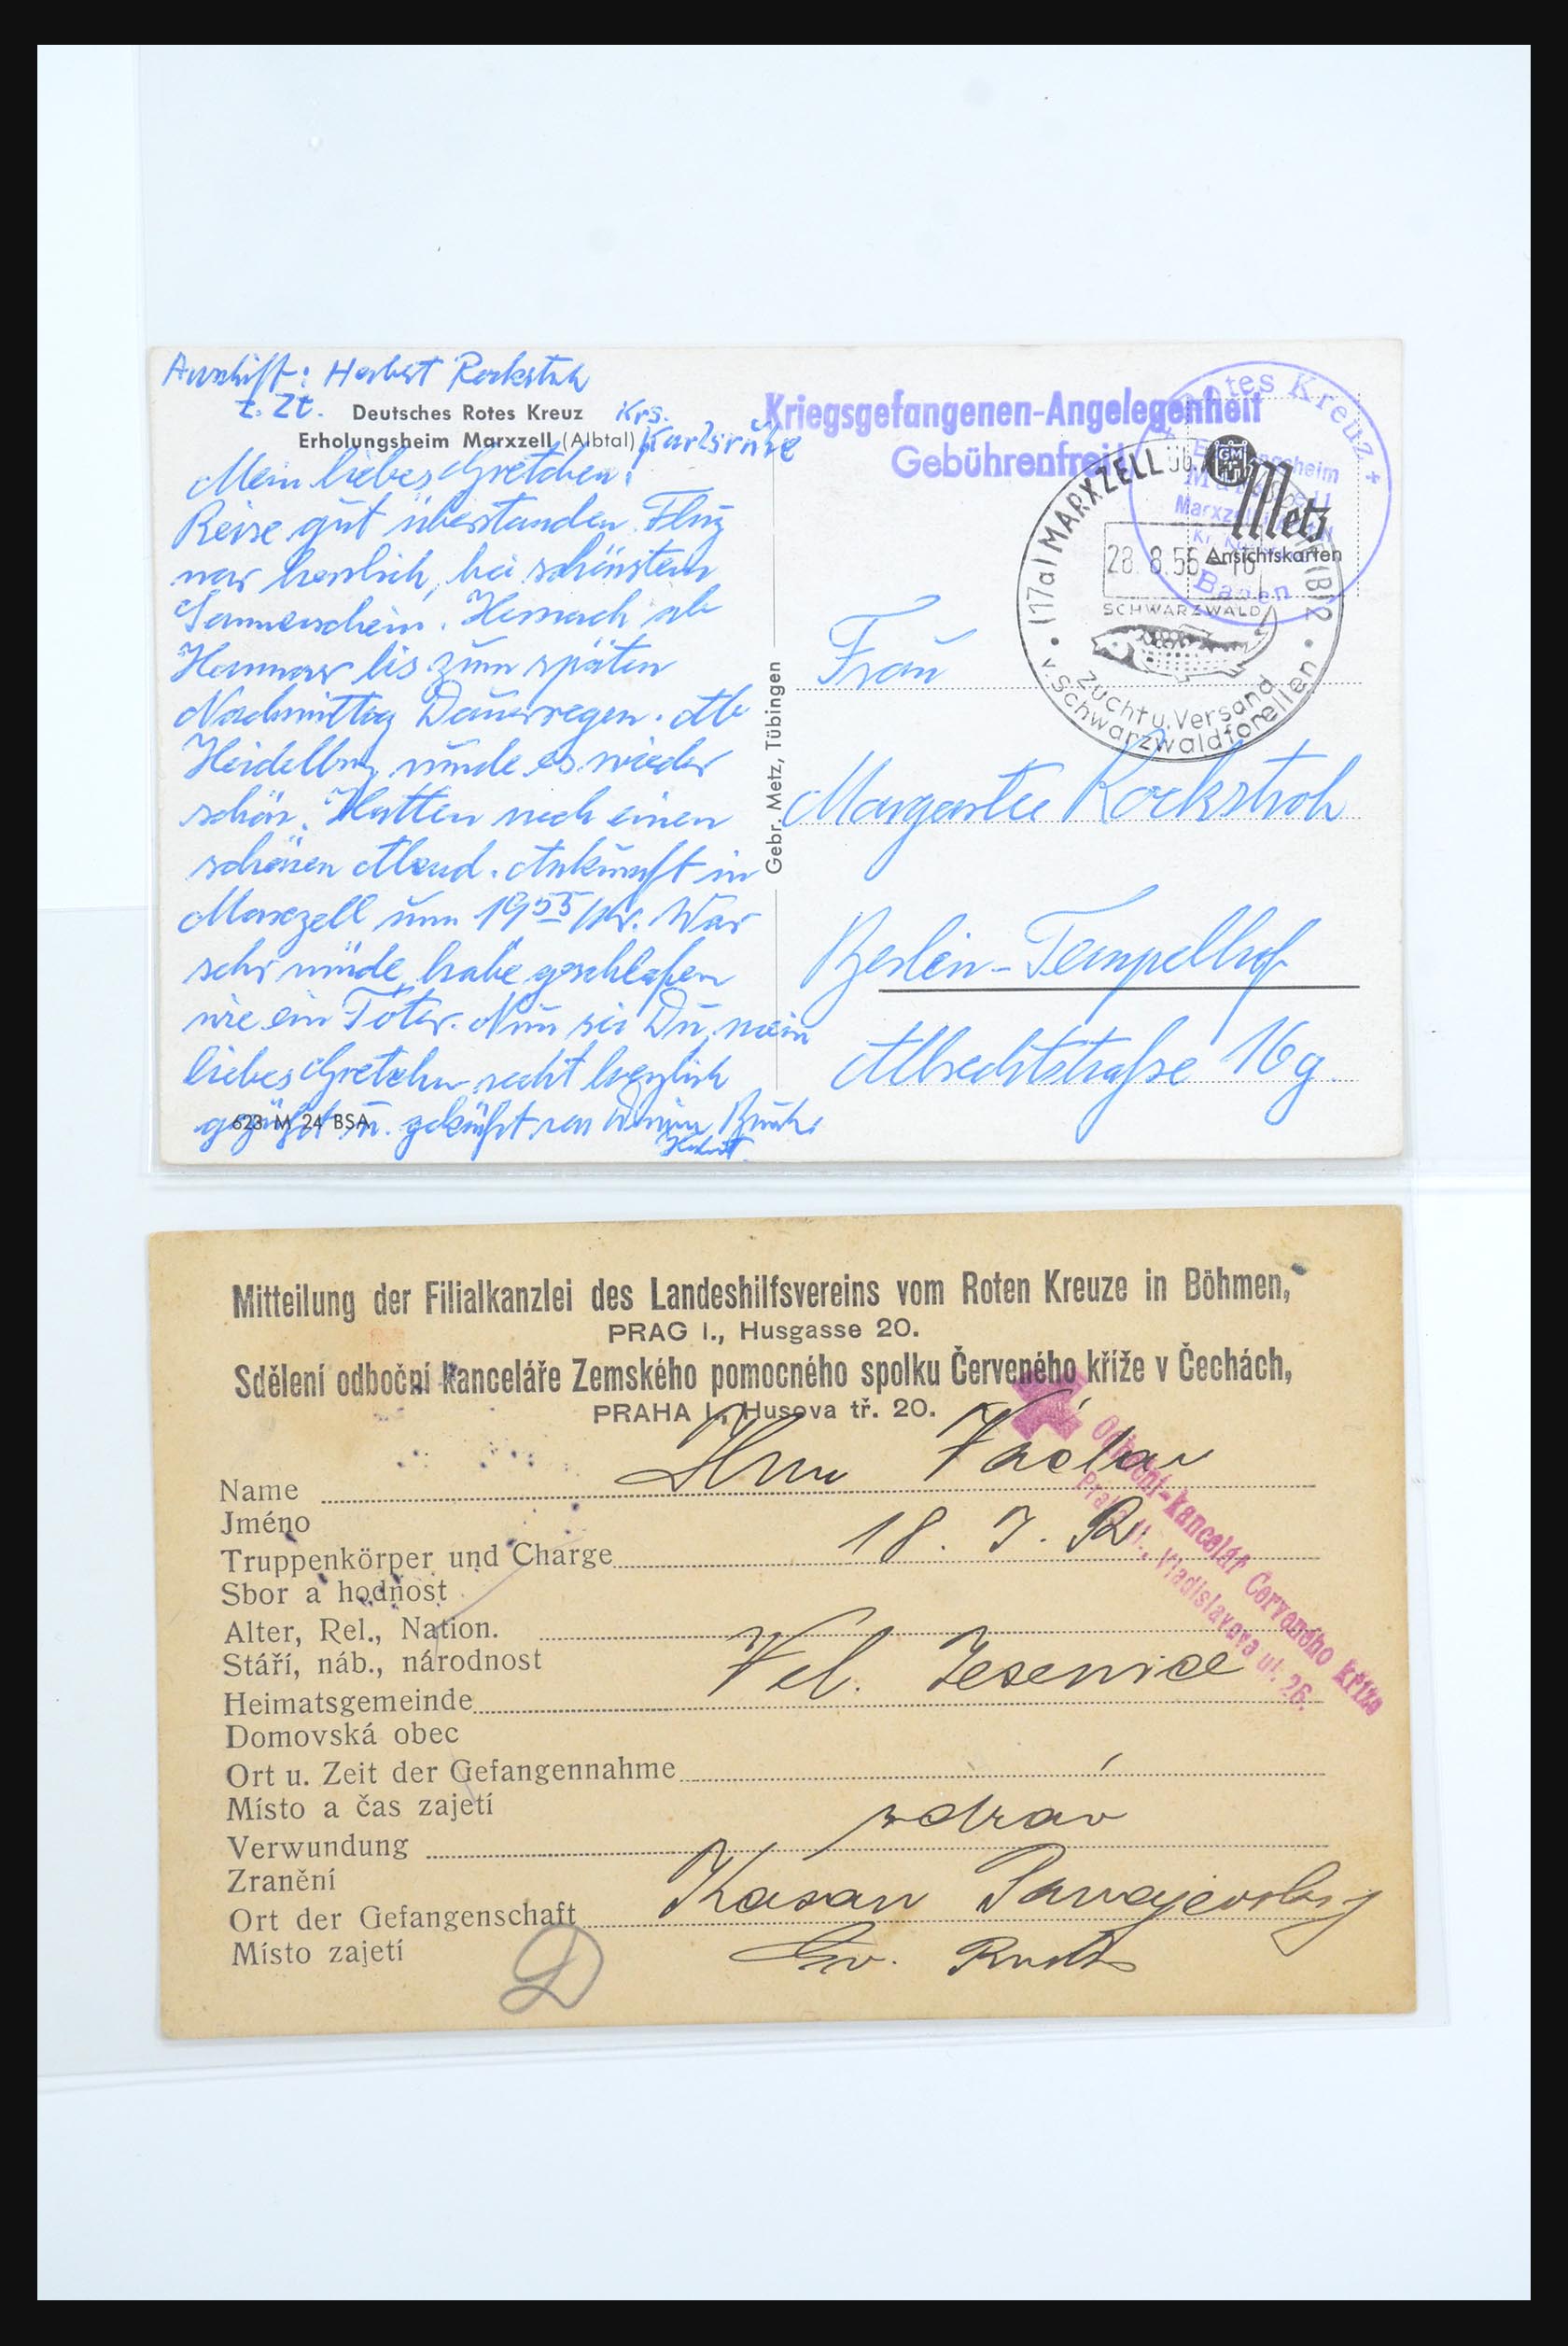 Anschift: Herbert Rockstroh
z. Zt. Deutsches Rotes Kreuz Krs.
Erholungsheim Marxzell (Albtal) Karlsruhe
Mein liebes Gretchen!
Reise gut überstanden. Flug
war herrlich, bei schönstem
Sonnenschein. Hernach ab
Hannover bis zum späten
Nachmittag Dauerregen. Ab
Heidelbrg wurde es wieder
schön. Hatten noch einen
schönen Abend. Ankunft in
Marxzell um 19 55 Uhr. War
sehr müde, habe geschlafen
wie ein Toter. Nun sei Du, mein
liebes Gretchen recht herzlich
gegrüßt u. geküßt von Deinem
Herbert
623 M 24 BSA
Gebr. Metz, Tübingen
Kriegsgefangenen-Angelegenheit
Gebührenfrei!
Rotes Kreuz +
Erholungsheim
Marxzell
Baden
Metz
Ansichtskarten
(17a) MARXZELL üb.
28.8.55
SCHWARZWALD
Zucht u. Versand
v. Schwarzwaldforellen
Frau
Margarete Rockstroh
Berlin-Tempelhof
Albrechtstraße 16g.
Mitteilung der Filialkanzlei des Landeshilfsvereins vom Roten Kreuze in Böhmen,
PRAG I., Husgasse 20.
Sdělení odboční kanceláře Zemského pomocného spolku Červeného kříže v Čechách,
PRAHA I., Husova tř. 20.
Odboční-kancelář Červeného kříže
Praha II., Vladislavova ul. 26.
Name Václav
Jméno
Truppenkörper und Charge 18. I. R.
Sbor a hodnost
Alter, Rel., Nation.
Stáří, náb., národnost
Heimatsgemeinde Vel. Jesenice
Domovská obec
Ort u. Zeit der Gefangennahme
Místo a čas zajetí
Verwundung zdráv
Zranění
Ort der Gefangenschaft Kasan
Místo zajetí
D